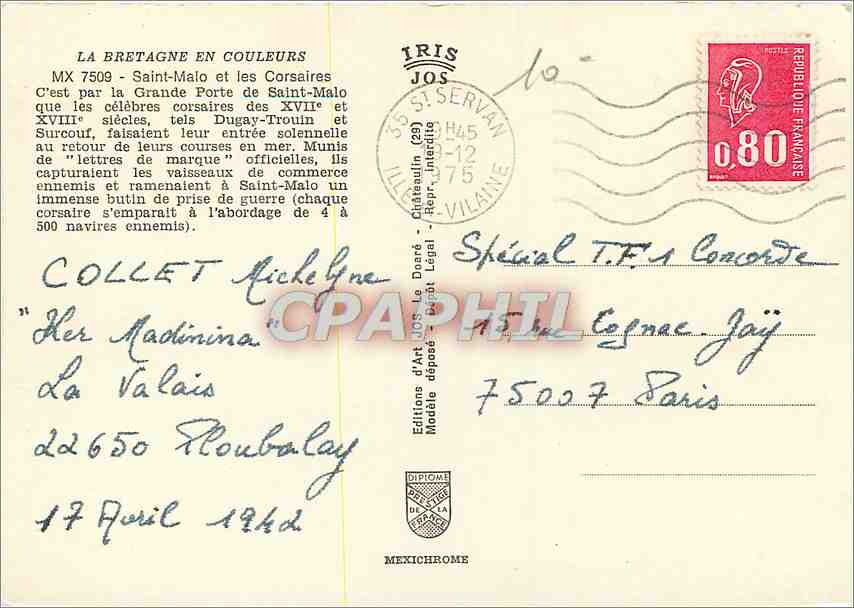 LA BRETAGNE EN COULEURS
MX 7509 - Saint-Malo et les Corsaires
C'est par la Grande Porte de Saint-Malo
que les célèbres corsaires des XVIIe et
XVIIIe siècles, tels Dugay-Trouin et
Surcouf, faisaient leur entrée solennelle
au retour de leurs courses en mer. Munis
de "lettres de marque" officielles, ils
capturaient les vaisseaux de commerce
ennemis et ramenaient à Saint-Malo un
immense butin de prise de guerre (chaque
corsaire s'emparait à l'abordage de 4 à
500 navires ennemis).
COLLET Michelyne
"Ker Madinina"
La Valais
22650 Ploubalay
17 Avril 1942
IRIS
JOS
Editions d'Art JOS Le Doaré - Châteaulin (29)
Modèle déposé - Dépôt Légal - Repr. interdite
DIPLOME
PRESTIGE
DE LA
FRANCE
MEXICHROME
10-
35 ST SERVAN
9H45
9-12
1975
ILLE-VILAINE
POSTES
REPUBLIQUE FRANÇAISE
0,80
Spécial T.F.1 Concorde
15 rue Cognac-Jaÿ
75007 Paris
CPAPHIL